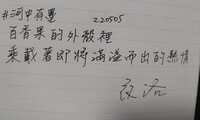 #河中有墨 220505
百香果的外殼裡
乘載著即將滿溢而出的熱情